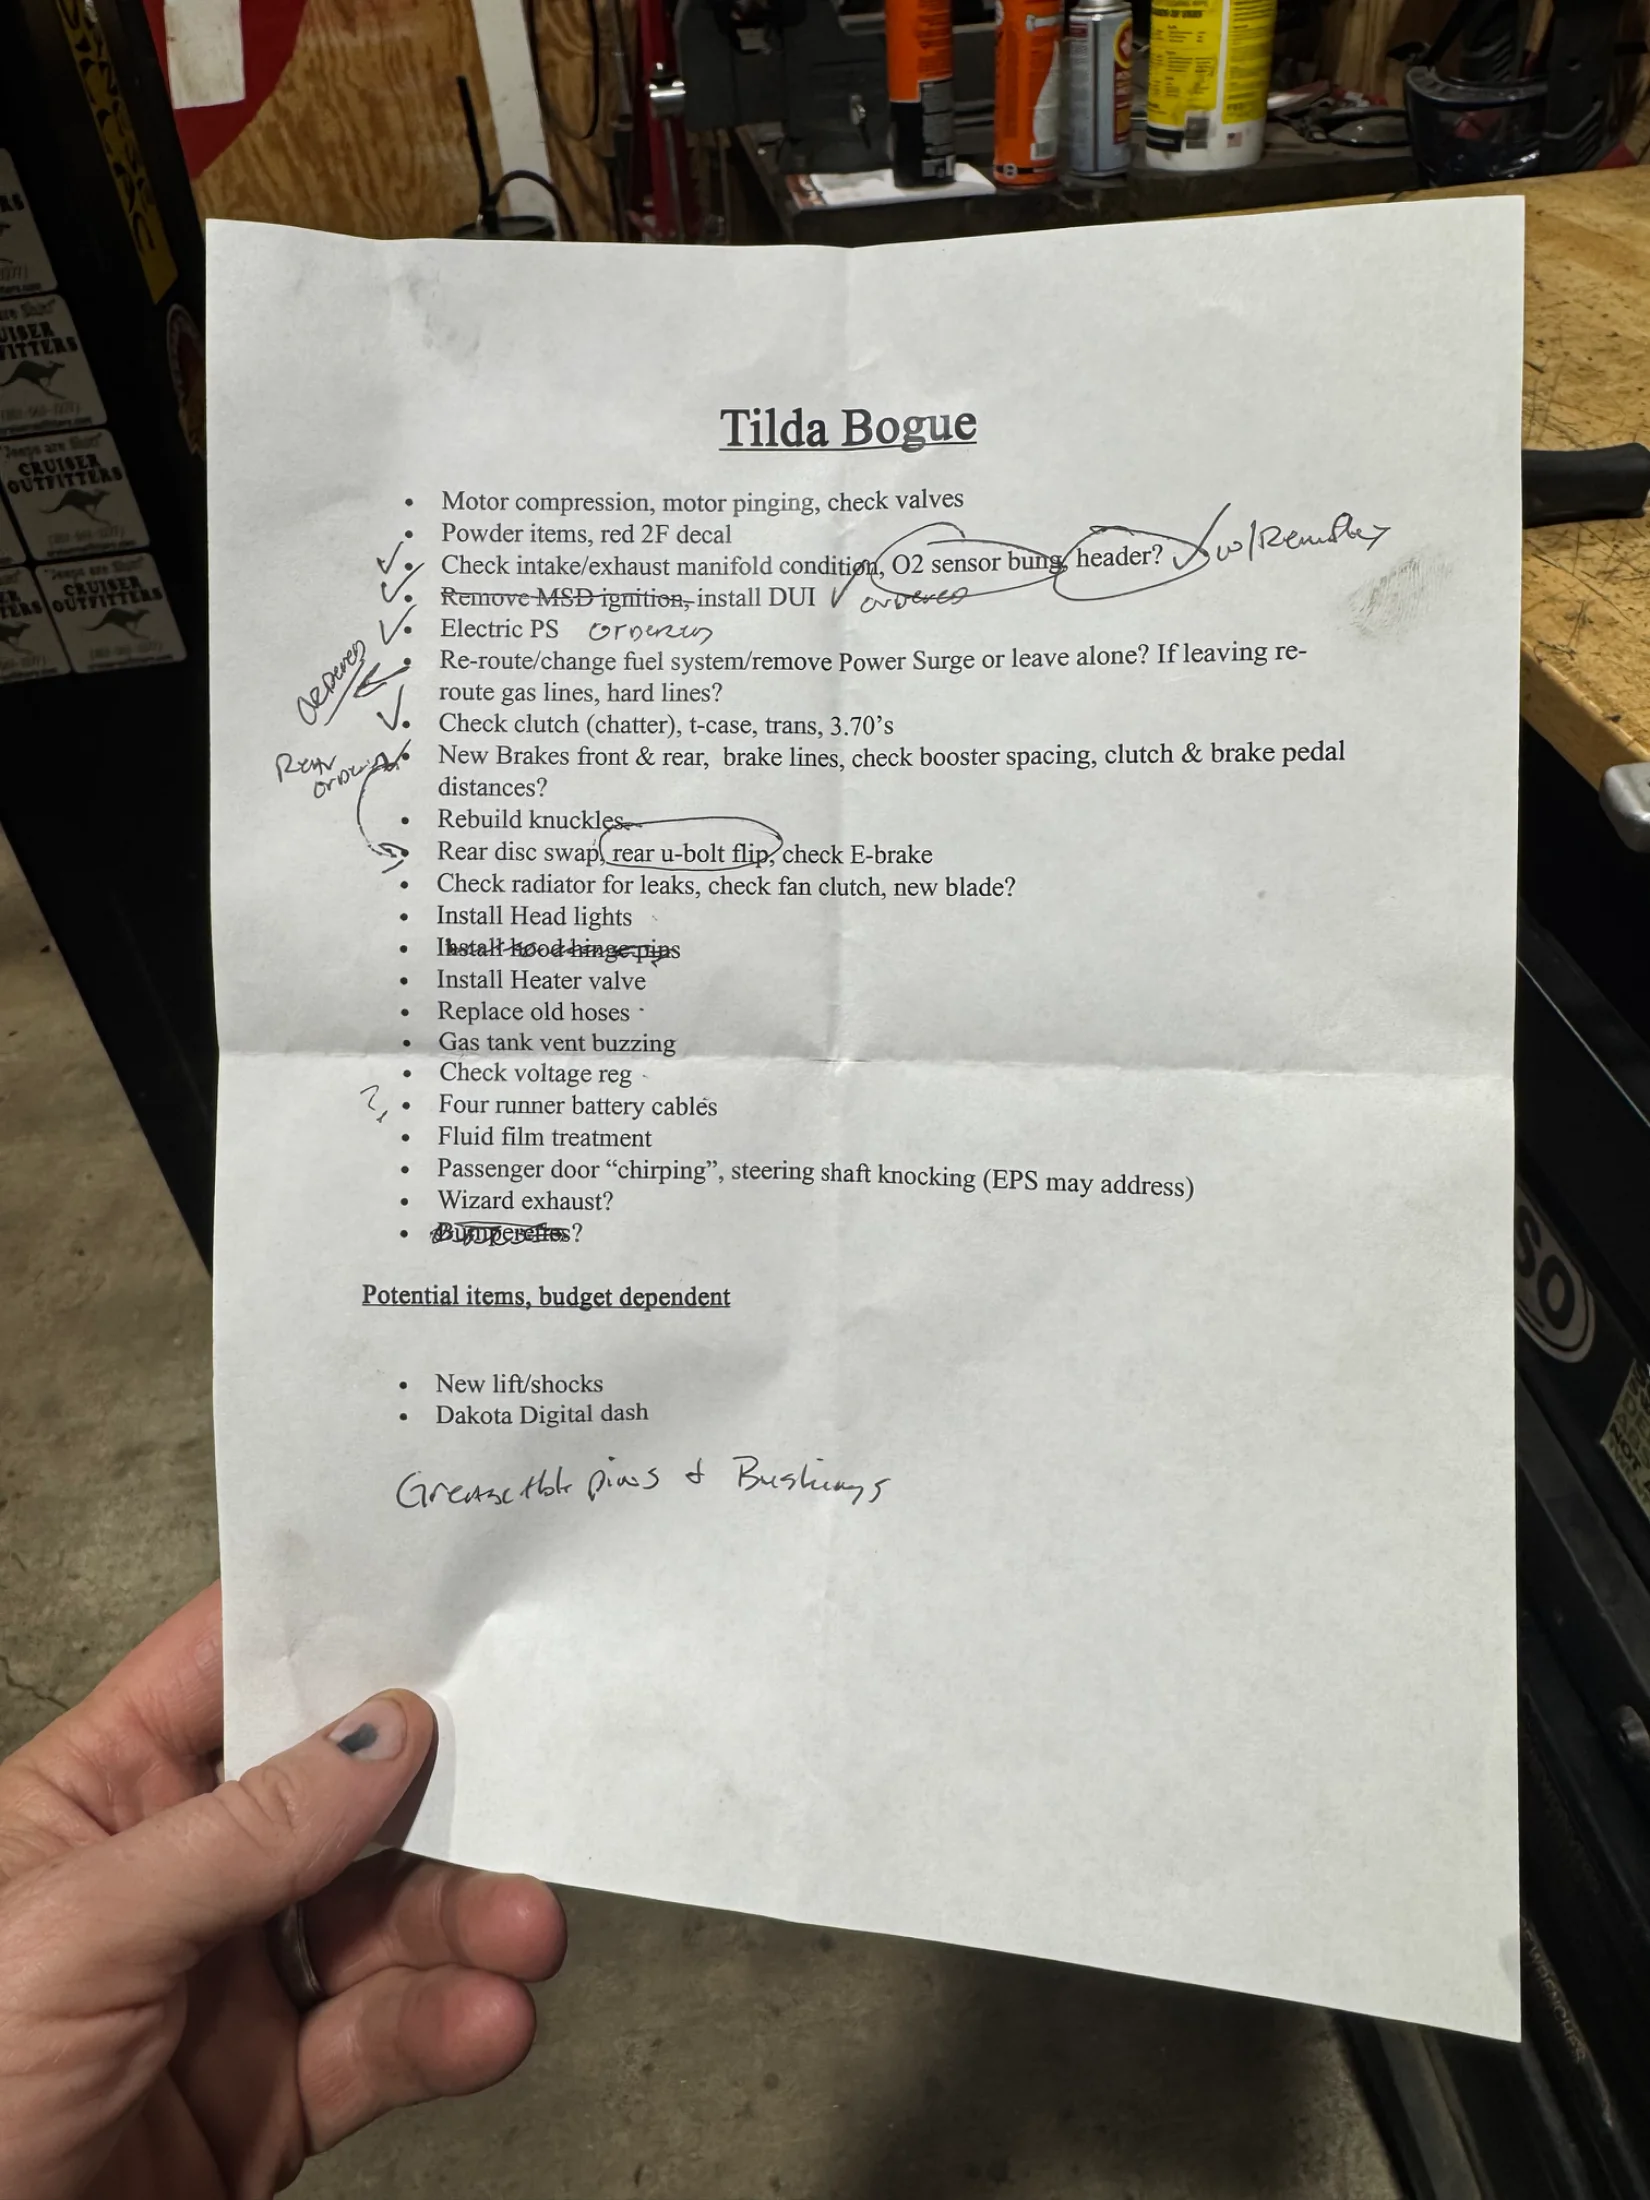 Tilda Bogue
• Motor compression, motor pinging, check valves
• Powder items, red 2F decal
• Check intake/exhaust manifold condition, O2 sensor bung, header? w/
• Remove MSD ignition, install DUI ordered
• Electric PS ordered
ordered
• Re-route/change fuel system/remove Power Surge or leave alone? If leaving re-
route gas lines, hard lines?
• Check clutch (chatter), t-case, trans, 3.70's
Rear
ordered
• New Brakes front & rear, brake lines, check booster spacing, clutch & brake pedal
distances?
• Rebuild knuckles
• Rear disc swap, rear u-bolt flip, check E-brake
• Check radiator for leaks, check fan clutch, new blade?
• Install Head lights
• Install hood hinge pins
• Install Heater valve
• Replace old hoses
• Gas tank vent buzzing
• Check voltage reg
? • Four runner battery cables
• Fluid film treatment
• Passenger door “chirping”, steering shaft knocking (EPS may address)
• Wizard exhaust?
• Bumperettes?
Potential items, budget dependent
• New lift/shocks
• Dakota Digital dash
Greasable pins & Bushings
CRUISER
OUTFITTERS
CRUISER
OUTFITTERS
SO